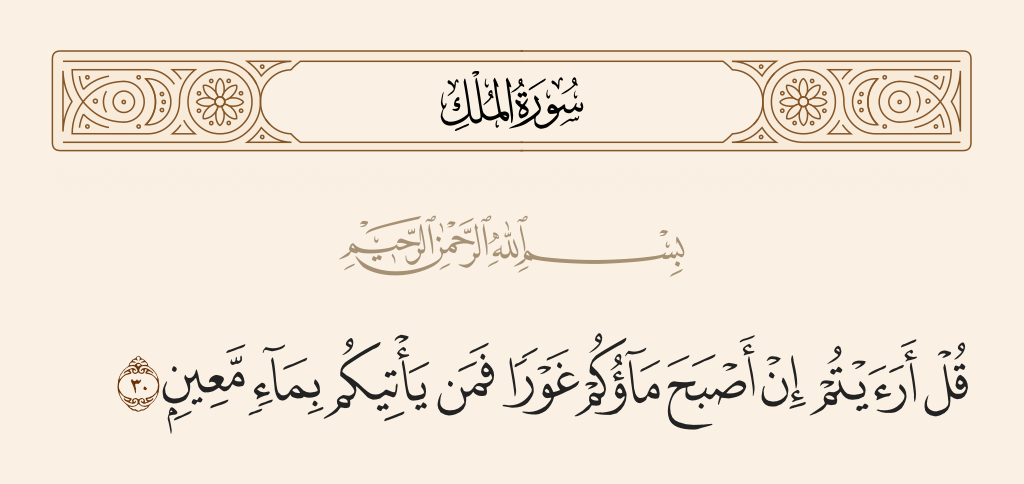 سُورَةُ الْمُلْكِ
بِسْمِ ٱللَّهِ ٱلرَّحْمَٰنِ ٱلرَّحِيمِ
قُلْ أَرَءَيْتُمْ إِنْ أَصْبَحَ مَآؤُكُمْ غَوْرًا فَمَن يَأْتِيكُم بِمَآءٍ مَّعِينٍ ٣٠